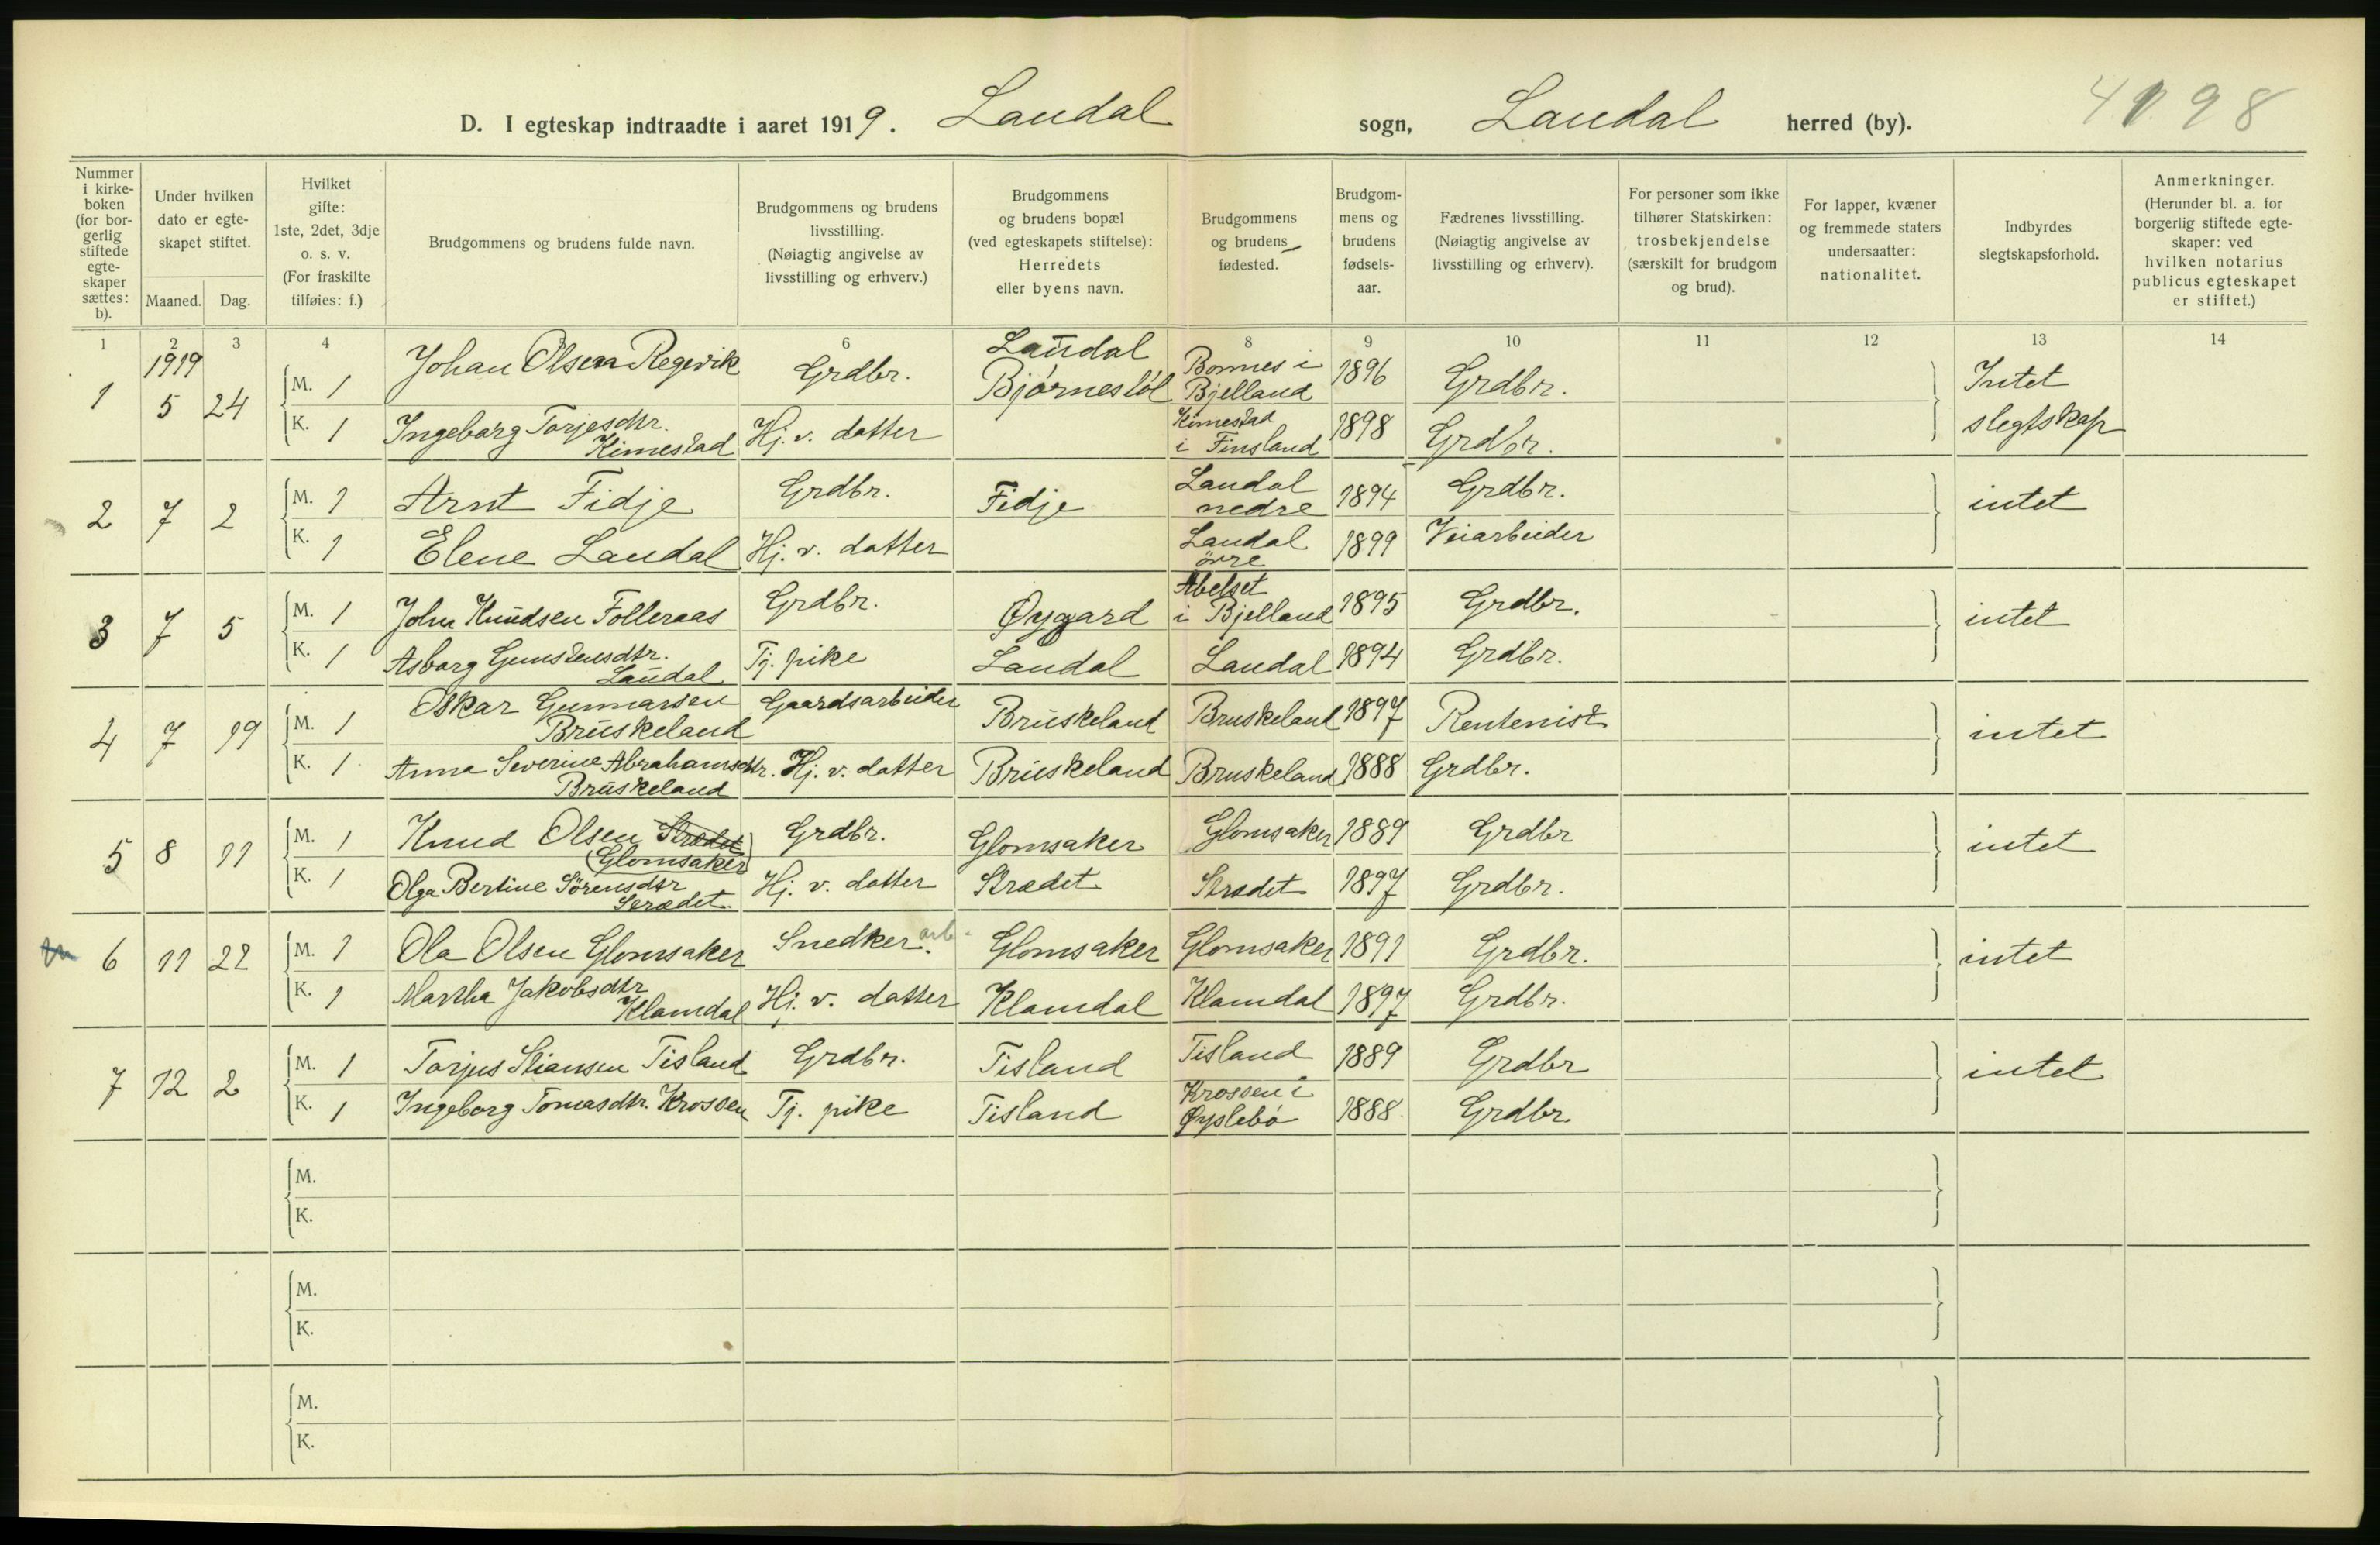 D. I egteskap indtraadte i aaret 1919. Laudal sogn, Laudal herred (by). 4198
Nummer i kirkeboken (for borgerlig stiftede egteskaper sættes: b).
Under hvilken dato er egteskapet stiftet.
Maaned. Dag.
Hvilket gifte: 1ste, 2det, 3dje o. s. v. (For fraskilte tilføies: f.)
Brudgommens og brudens fulde navn.
Brudgommens og brudens livsstilling. (Nøiagtig angivelse av livsstilling og erhverv.)
Brudgommens og brudens bopæl (ved egteskapets stiftelse): Herredets eller byens navn.
Brudgommens og brudens fødested.
Brudgommens og brudens fødselsaar.
Fædrenes livsstilling. (Nøiagtig angivelse av livsstilling og erhverv).
For personer som ikke tilhører Statskirken: trosbekjendelse (særskilt for brudgom og brud).
For lapper, kvæner og fremmede staters undersaatter: nationalitet.
Indbyrdes slegtskapsforhold.
Anmerkninger. (Herunder bl. a. for borgerlig stiftede egteskaper: ved hvilken notarius publicus egteskapet er stiftet.)
1 2 3 4 6 8 9 10 11 12 13 14
1 1919 5 24 M. 1 Johan Olsen Regevik Grdbr. Laudal Bjørnesløl Bonnes i Bjelland 1896 Grdbr. Intet slegtskap
K. 1 Ingeborg Torjesdtr. Kimestad Hj. v. datter Kimestad i Finsland 1898 Grdbr.
2 7 2 M. 1 Arnt Fidje Grdbr. Fidje Laudal nedre 1894 Grdbr. intet
K. 1 Elene Laudal Hj. v. datter Laudal övre 1899 Veiarbeider
3 7 5 M. 1 John Knudsen Folleraas Grdbr. Øygard Abelset i Bjelland 1895 Grdbr. intet
K. 1 Asborg Gunstensdtr. Laudal Tj. pike Laudal Laudal 1894 Grdbr.
4 7 19 M. 1 Oskar Gunnarsen Bruskeland Gaardsarbeider Bruskeland Bruskeland 1897 Rentenist intet
K. 1 Anna Severine Abrahamsdtr. Bruskeland Hj. v. datter Bruskeland Bruskeland 1888 Grdbr.
5 8 11 M. 1 Knud Olsen Strædet (Glomsaker) Grdbr. Glomsaker Glomsaker 1889 Grdbr intet
K. 1 Olga Bertine Sörensdtr Strædet. Hj. v. datter Strædet Strædet 1897 Grdbr.
6 11 22 M. 1 Ola Olsen Glomsaker Snedker. arb. Glomsaker Glomsaker 1891 Grdbr. intet
K. 1 Martha Jakobsdtr Klamdal Hj. v. datter Klamdal Klamdal 1897 Grdbr.
7 12 2 M. 1 Torjus Stiansen Tisland Grdbr. Tisland Tisland 1889 Grdbr intet
K. 1 Ingeborg Tomasdtr. Krossen Tj. pike Tisland Krossen i Øyslebø 1888 Grdbr.
M.
K.
M.
K.
M.
K.